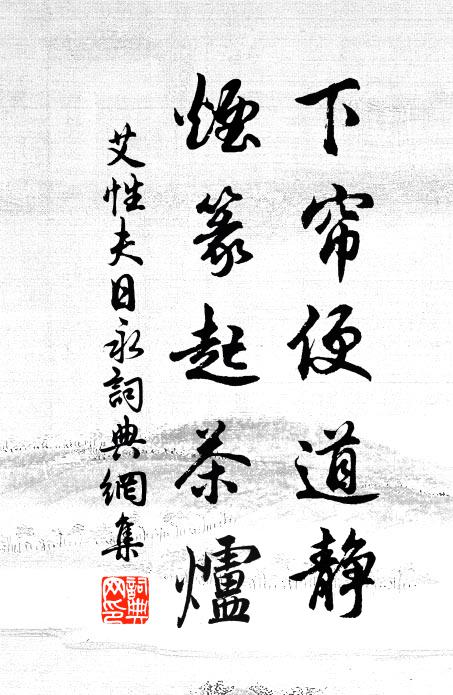 下帘便道静
煙篆起茶爐
艾性夫日永詞典網集
詞典